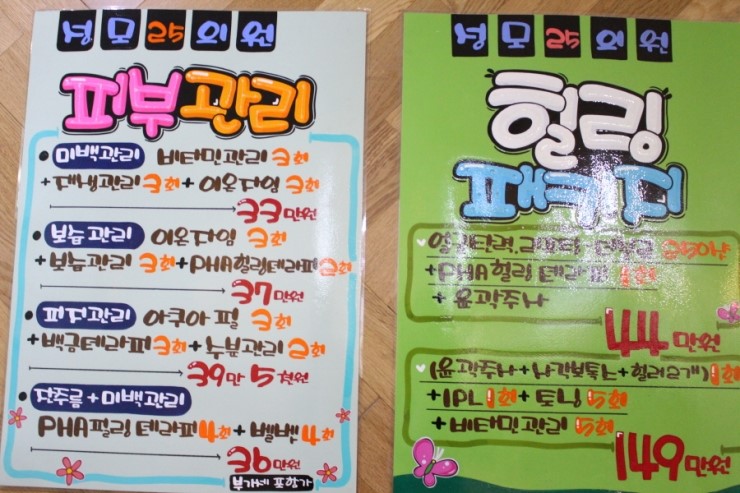 성모25의원
피부관리
• 미백관리 비타민관리 3회
+ 재생관리 3회 + 이온자임 3회
33만원
• 보습관리 이온자임 3회
+ 보습관리 3회 + PHA힐링테라피 2회
37만원
• 피지관리 아쿠아필 3회
+ 백금테라피 3회 + 누뿐관리 2회
39만 5천원
• 잔주름 + 미백관리
PHA필링 테라피 4회 + 벨벳 4회
36만원
부가세 포함가
성모25의원
힐링
패키지
250샷
+ PHA힐링 테라피
+ 윤곽주사
44만원
(윤곽주사 + 사각보톡스 + 필러2개) 1회
+ IPL 1회 + 토닝 5회
+ 비타민관리 5회
149만원